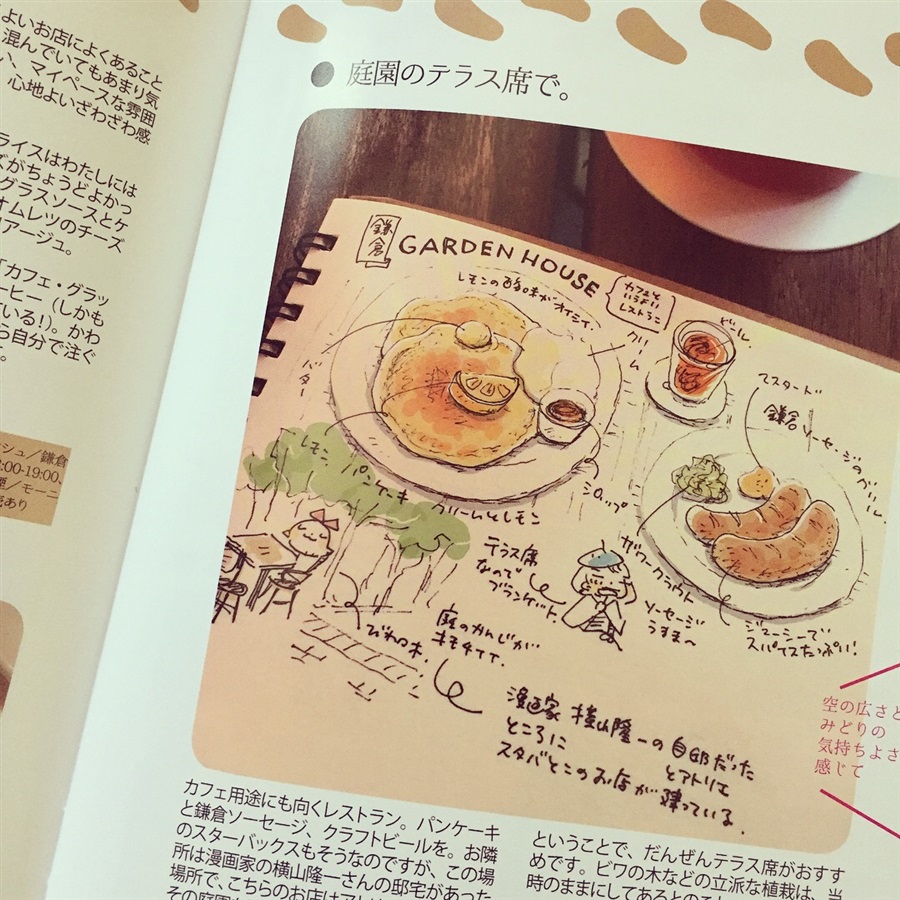 よいお店によくあること
混んでいてもあまり気
い、マイペースな雰囲
心地よいざわざわ感
ライスはわたしには
ズがちょうどよかっ
グラスソースとケ
オムレツのチーズ
リアージュ。
「カフェ・グラッ
ーヒー（しかも
ている!)。かわ
ら自分で注ぐ
。
ッシュ／鎌倉
:00-19:00、
／モーニ
売あり
庭園のテラス席で。
鎌倉
GARDEN HOUSE
カフェと
いうより
レストラン
レモンの酸味がオイシイ、
クリーム
ビール。
バター
マスタード
鎌倉ソーセージのグリル。
レモンパンケーキ
クリームとレモン
シロップ
テラス席
なので
ブランケット。
ザワークラウト
ソーセージ
うまま〜
ジューシーで
スパイスたっぷい!
びわの木。
庭のかんじが
キモチイイ、
漫画家 横山隆一の自邸だった
とアトリエ
ところに
スタバとこのお店が建っている。
空の広さと
みどりの
気持ちよさ
感じて
カフェ用途にも向くレストラン。パンケーキ
と鎌倉ソーセージ、クラフトビールを。お隣
のスターバックスもそうなのですが、この場
所は漫画家の横山隆一さんの邸宅があった
場所で、こちらのお店はアト
その庭園
ということで、だんぜんテラス席がおすす
めです。ビワの木などの立派な植栽は、当
時のままにしてあるとのこ